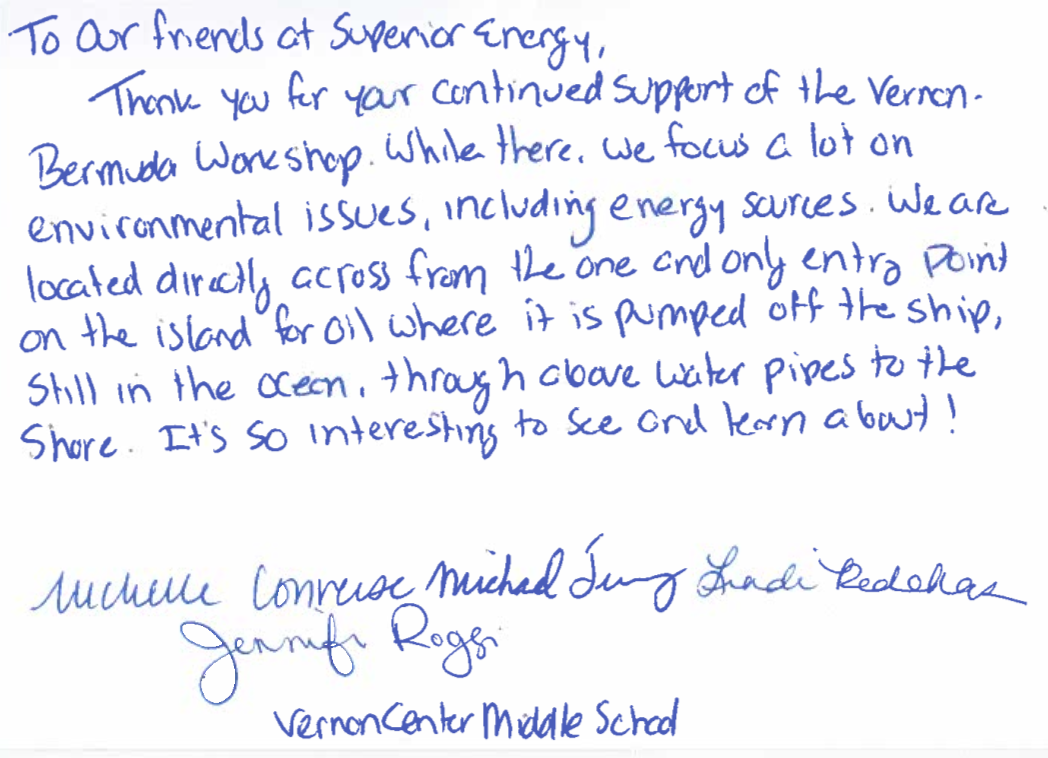 To Our friends at Superior Energy,
Thank you for your continued support of the Vernon-
Bermuda Workshop. While there, we focus a lot on
environmental issues, including energy sources. We are
located directly across from the one and only entry point
on the island for oil where it is pumped off the ship,
still in the ocean, through above water pipes to the
shore. It's so interesting to see and learn about!
Michelle Converse Michael
Jennifer
Vernon Center Middle School